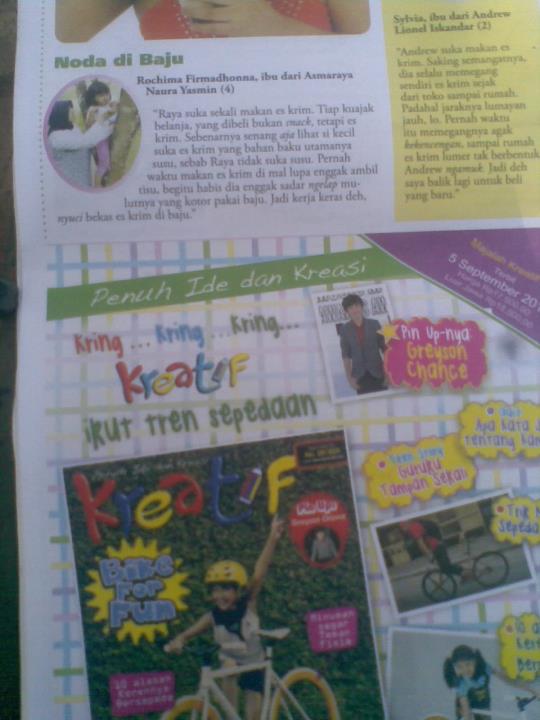 Noda di Baju
Rochima Firmadhonna, ibu dari Asmaraya
Naura Yasmin (4)
"Raya suka sekali makan es krim. Tiap kuajak
belanja, yang dibeli bukan snack, tetapi es
krim. Sebenarnya senang aja lihat si kecil
suka es krim yang bahan baku utamanya
susu, sebab Raya tidak suka susu. Pernah
waktu makan es krim di mal lupa enggak ambil
tisu, begitu habis dia enggak sadar ngelap mu-
lutnya yang kotor pakai baju. Jadi kerja keras deh,
nyuci bekas es krim di baju."
Sylvia, ibu dari Andrew
Lionel Iskandar (2)
"Andrew suka makan es
krim. Saking semangatnya,
dia selalu memegang
sendiri es krim sejak
dari toko sampai rumah.
Padahal jaraknya lumayan
jauh, lo. Pernah waktu
itu memegangnya agak
kekencengan, sampai rumah
es krim lumer tak berbentuk
Andrew ngamuk. Jadi deh
saya balik lagi untuk beli
yang baru."
Penuh Ide dan Kreasi
Majalah Kreatif
Terbit
5 September 20
Harga Rp17.500,00
Luar Jawa
Kring ... Kring ... Kring...
Kreatif
ikut tren sepedaan
Pin Up-nya
Greyson
Chance
Apa Kata
Tentang
Teen Story
Guruku
Tampan Sekali
Trik
Sepeda
10
Kreatif
Pin Up!
Greyson Chance
Bike
For
Fun
Minuman
Segar
Teman
10 alasan
Kerennya
Bersepeda